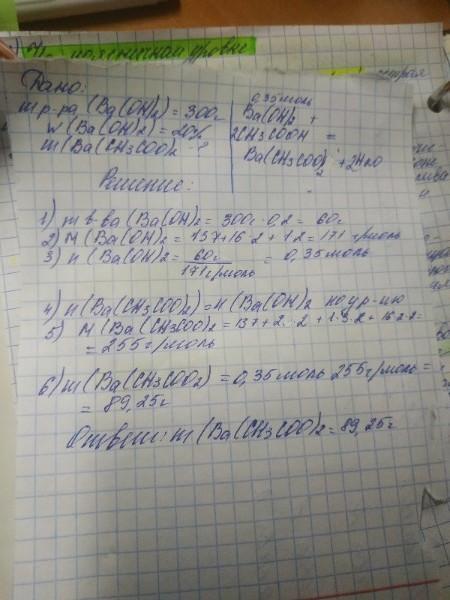 Дано:
m р-ра (Ba(OH)2) = 300г
W (Ba(OH)2) = 20%
m(Ba(CH3COO)2 - ?
0,35моль
Ba(OH)2 +
2CH3COOH =
Ba(CH3COO)2 + 2H2O
Решение:
1) m в ва (Ba(OH)2 = 300г·0,2 = 60г
2) M (Ba(OH)2 = 137+16·2 + 1·2 = 171 г/моль
3) n (Ba(OH)2 = 60г / 171г/моль = 0,35моль
4) n(Ba(CH3COO)2) = n(Ba(OH)2 по ур-ию
5) M (Ba(CH3COO)2 = 137+
= 255г/моль
6) m(Ba(CH3COO2) = 0,35моль 255г/моль =
= 89,25г
Ответ: m (Ba(CH3COO)2 = 89,25г